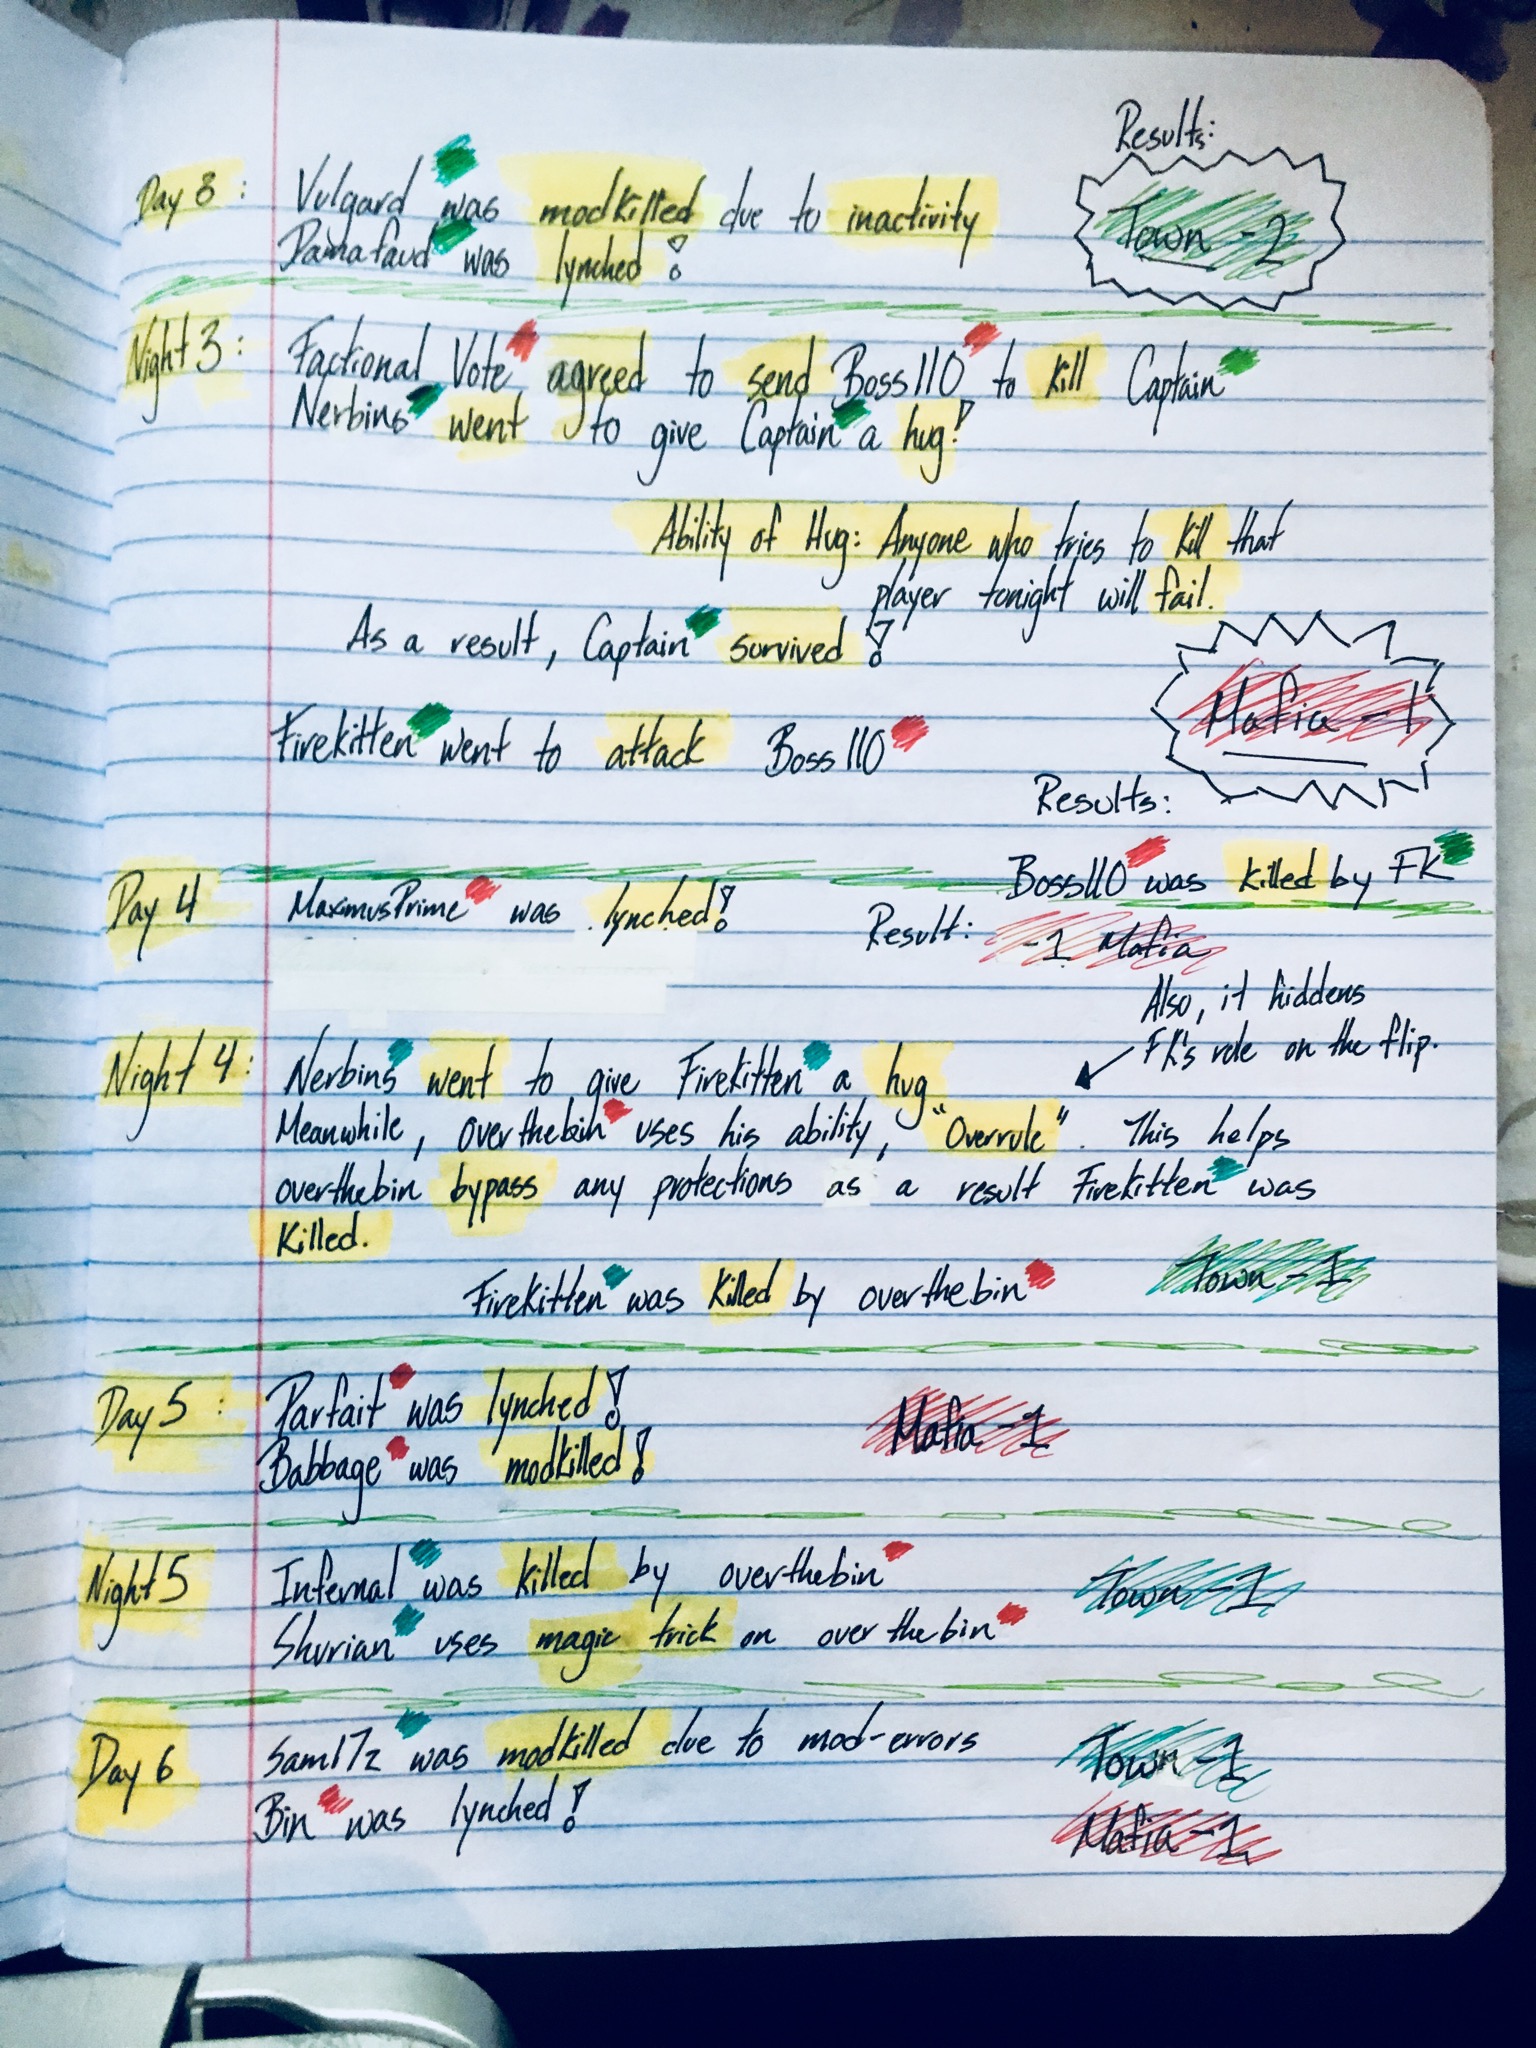 Results:
Day 3: Vulgard was modkilled due to inactivity
Damafaud was lynched!
Town -2
Night 3: Factional Vote agreed to send Boss110 to kill Captain
Nerbins went to give Captain a hug!
Ability of Hug: Anyone who tries to kill that
player tonight will fail.
As a result, Captain survived!
Mafia -1
Firekitten went to attack Boss110
Results:
Boss110 was killed by FK
Day 4 MaximusPrime was lynched!
Result: -1 Mafia
Also, it hiddens
FK's role on the flip.
Night 4: Nerbins went to give Firekitten a hug
Meanwhile, overthebin uses his ability, "Overrule". This helps
overthebin bypass any protections as a result Firekitten was
killed.
Firekitten was killed by overthebin Town -1
Day 5: Parfait was lynched! Mafia -1
Babbage was modkilled!
Night 5 Infernal was killed by overthebin Town -1
Shurian uses magic trick on overthebin
Day 6 Sam17z was modkilled due to mod-errors Town -1
Bin was lynched! Mafia -1